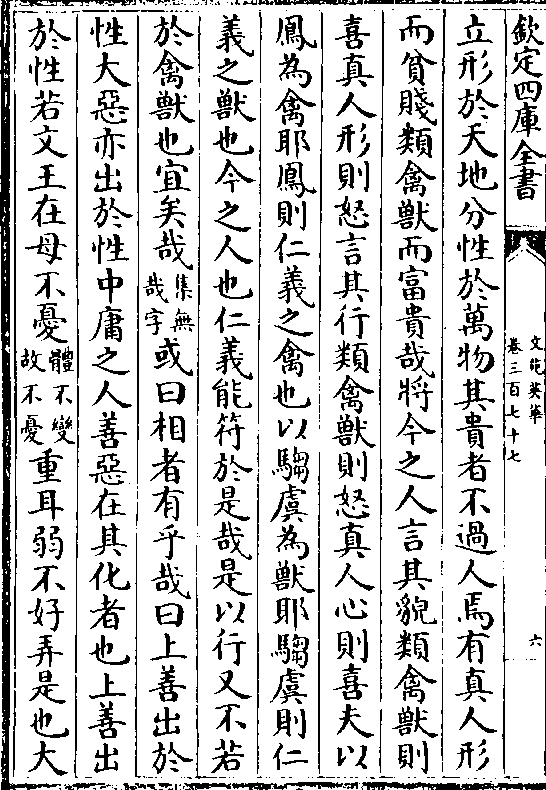 欽定四庫全書
文苑英華
卷三百七十七
六
立形於天地分性於萬物其貴者不過人焉有真人形
而貧賤類禽獸而富貴哉將今之人言其貌類禽獸則
喜真人形則怒言其行類禽獸則怒真人心則喜夫以
鳳為禽耶鳳則仁義之禽也以騶虞為獸耶騶虞則仁
義之獸也今之人也仁義能符於是哉是以行又不若
於禽獸也宜矣哉集無哉字或曰相者有乎哉曰上善出於
性大惡亦出於性中庸之人善惡在其化者也上善出
於性若文王在母不憂體不變故不憂重耳弱不好弄是也大